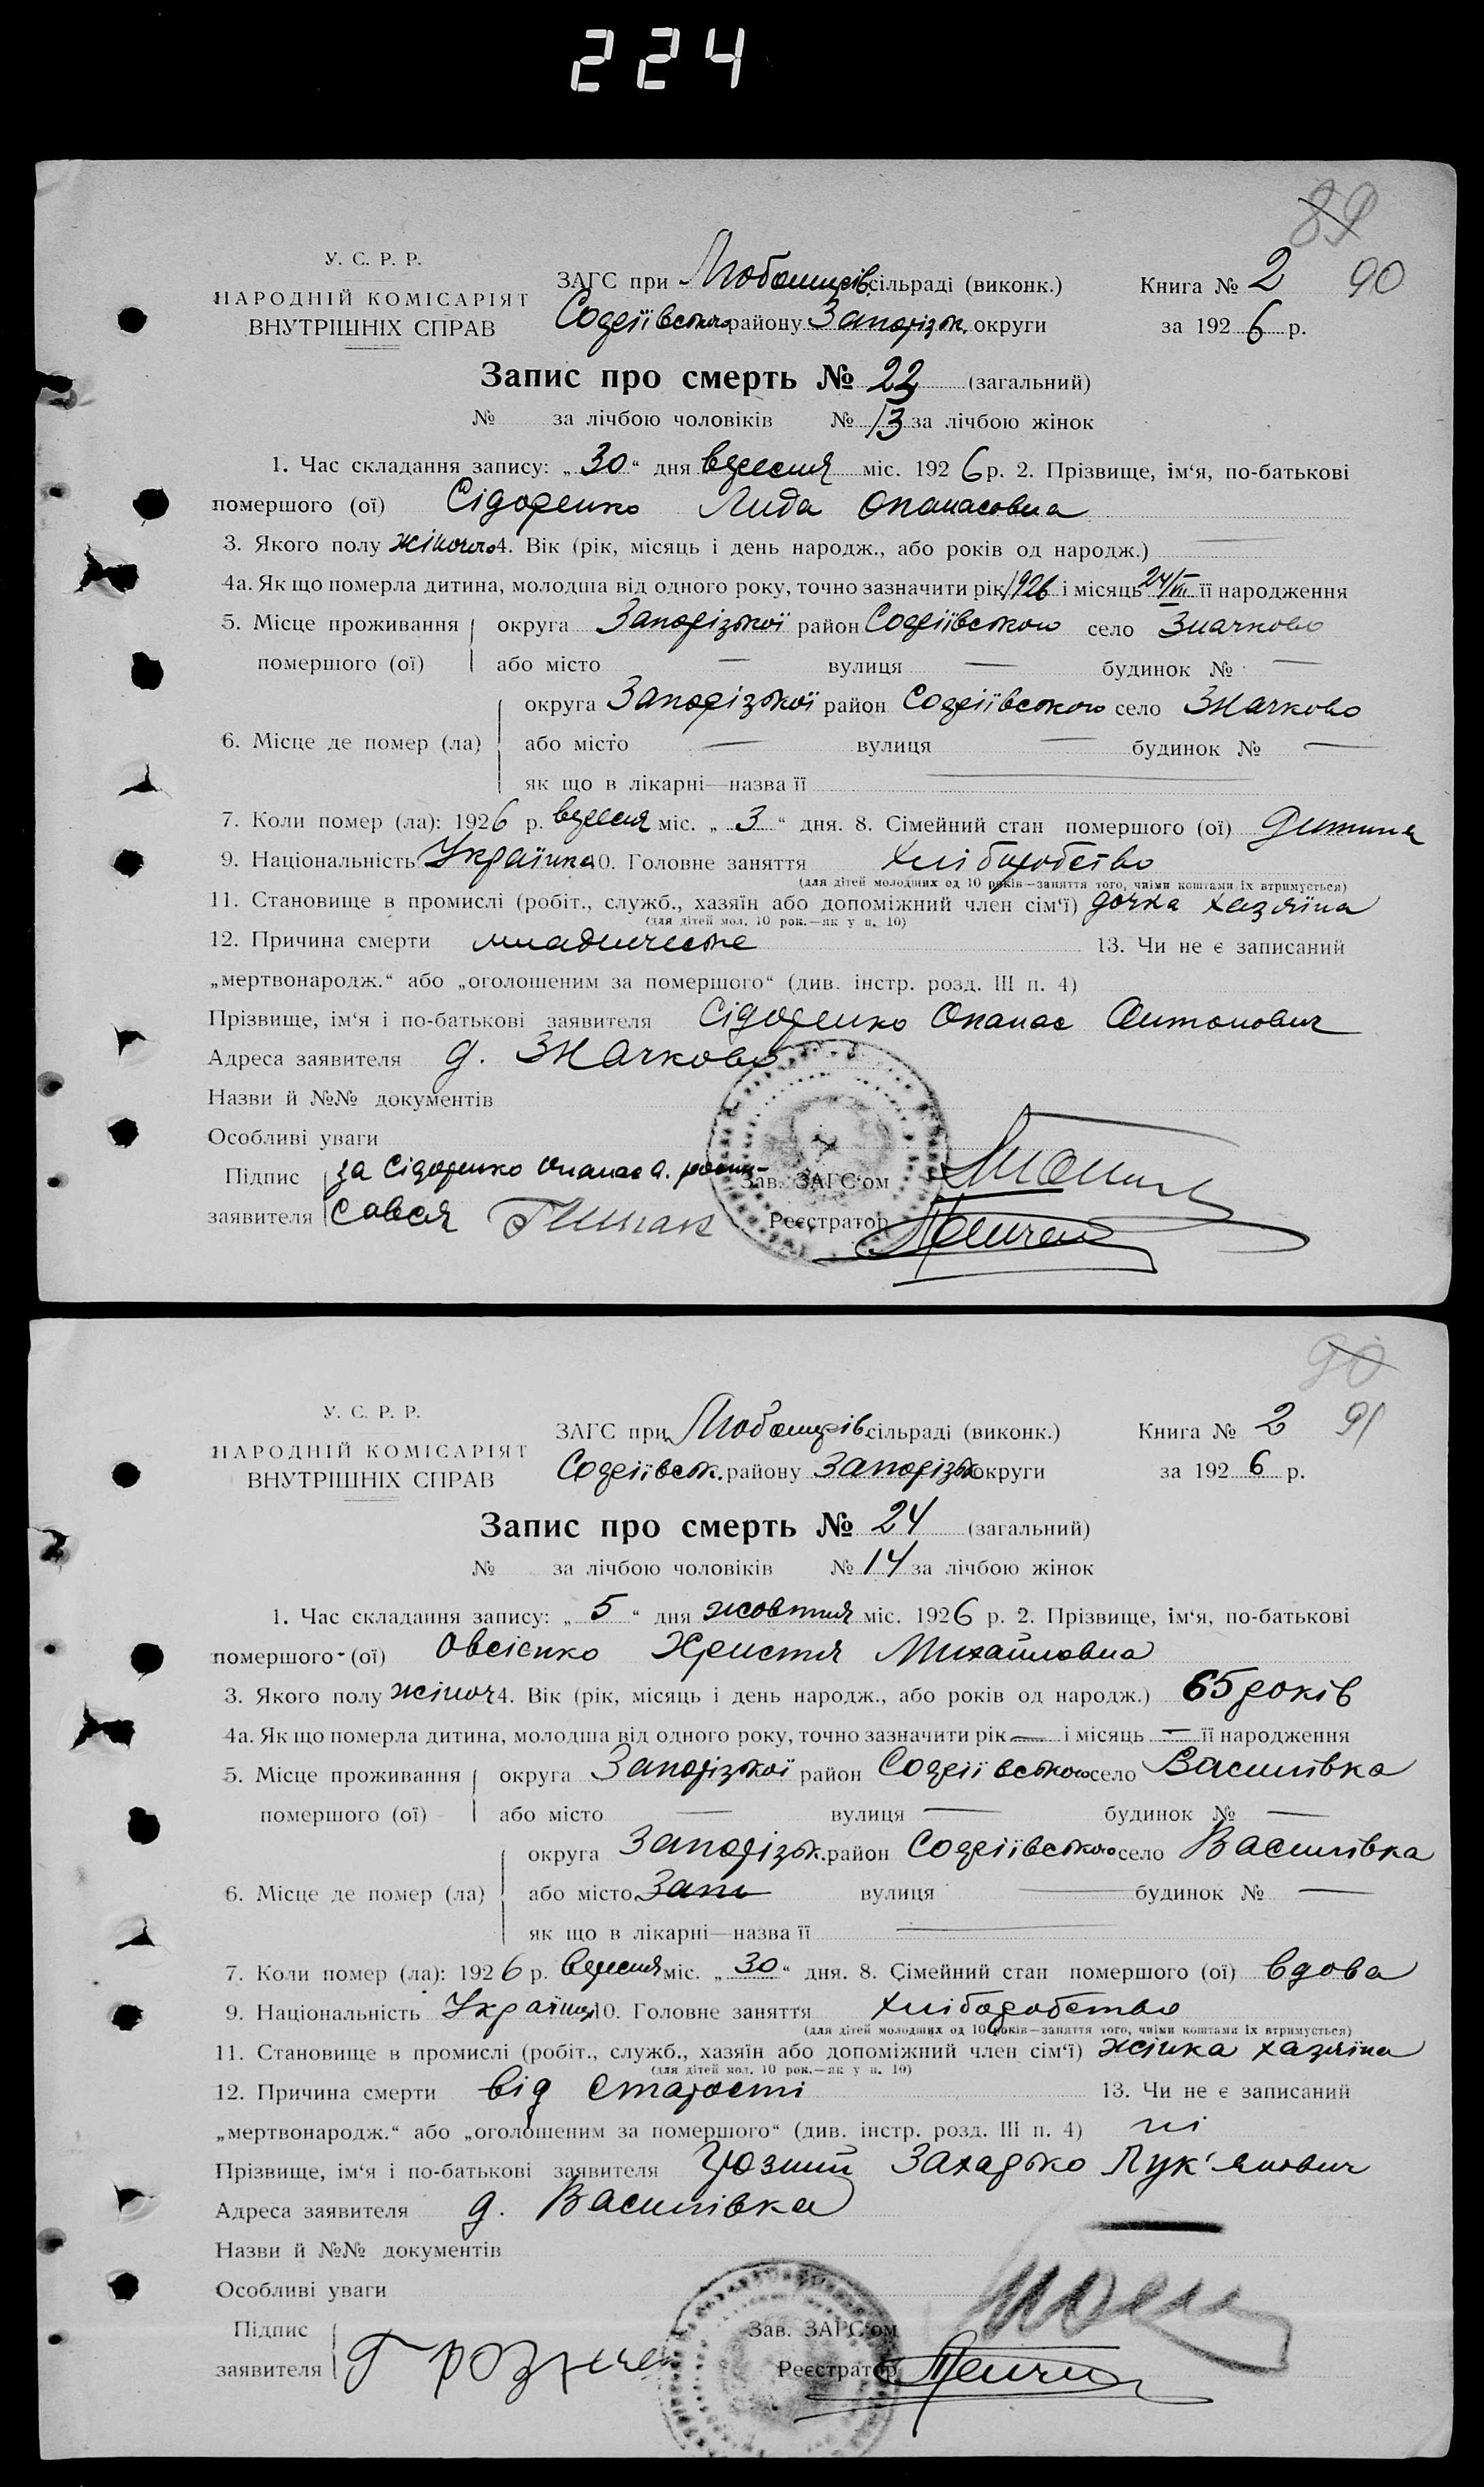 224
89
У. С. Р. Р.
НАРОДНІЙ КОМІСАРІЯТ
ВНУТРІШНІХ СПРАВ
ЗАГС при сільраді (виконк.)
району Запоріз. округи
Книга № 2 90
за 1926 р.
Запис про смерть № 23 (загальний)
№ за лічбою чоловіків № 13 за лічбою жінок
1. Час складання запису: „30“ дня вересня міс. 1926 р. 2. Прізвище, ім‘я, по-батькові
помершого (ої) Сідоренко Лида Опанасовна
3. Якого полу жіночого 4. Вік (рік, місяць і день народж., або років од народж.) —
4а. Як що померла дитина, молодша від одного року, точно зазначити рік 1926 і місяць 24/VIII її народження
5. Місце проживання округа Запорізької район Софіївського село Значково
помершого (ої) або місто — вулиця — будинок № —
округа Запорізької район Софіївського село Значково
6. Місце де помер (ла) або місто — вулиця — будинок № —
як що в лікарні—назва її —
7. Коли помер (ла): 1926 р. вересня міс. „3“ дня. 8. Сімейний стан помершого (ої) дитина
9. Національність Українка 10. Головне заняття хліборобство
(для дітей молодших од 10 років—заняття того, чиїми коштами їх втримується)
11. Становище в промислі (робіт., служб., хазяїн або допоміжний член сім‘ї) дочка хазяїна
(для дітей мол. 10 рок.—як у п. 10)
12. Причина смерти 13. Чи не є записаний
„мертвонародж.“ або „оголошеним за помершого“ (див. інстр. розд. III п. 4)
Прізвище, ім‘я і по-батькові заявителя Сідоренко Опанас Антонович
Адреса заявителя д. Значково
Назви й №№ документів
Особливі уваги
Підпис за Сідоренко Опанас А. роспи-
заявителя
Зав. ЗАГС‘ом
Реєстратор
90
У. С. Р. Р.
НАРОДНІЙ КОМІСАРІЯТ
ВНУТРІШНІХ СПРАВ
ЗАГС при сільраді (виконк.)
Софіївськ. району Запорізьк округи
Книга № 2 91
за 1926 р.
Запис про смерть № 24 (загальний)
№ за лічбою чоловіків № 14 за лічбою жінок
1. Час складання запису: „5“ дня жовтня міс. 1926 р. 2. Прізвище, ім‘я, по-батькові
помершого (ої) Овсієнко Христя Михайловна
3. Якого полу жіноч 4. Вік (рік, місяць і день народж., або років од народж.) 65 років
4а. Як що померла дитина, молодша від одного року, точно зазначити рік — і місяць — її народження
5. Місце проживання округа Запорізької район Софіївського село Василівка
помершого (ої) або місто — вулиця — будинок № —
округа Запорізьк. район Софіївського село Василівка
6. Місце де помер (ла) або місто Запо вулиця — будинок № —
як що в лікарні—назва її —
7. Коли помер (ла): 1926 р. вересня міс. „30“ дня. 8. Сімейний стан помершого (ої) вдова
9. Національність 10. Головне заняття хліборобство
(для дітей молодших од 10 років—заняття того, чиїми коштами їх втримується)
11. Становище в промислі (робіт., служб., хазяїн або допоміжний член сім‘ї) жінка хазяїна
(для дітей мол. 10 рок.—як у п. 10)
12. Причина смерти від старости 13. Чи не є записаний
„мертвонародж.“ або „оголошеним за помершого“ (див. інстр. розд. III п. 4) ні
Прізвище, ім‘я і по-батькові заявителя Захарько Лук'янович
Адреса заявителя д. Василівка
Назви й №№ документів
Особливі уваги
Підпис
заявителя
Зав. ЗАГС‘ом
Реєстратор